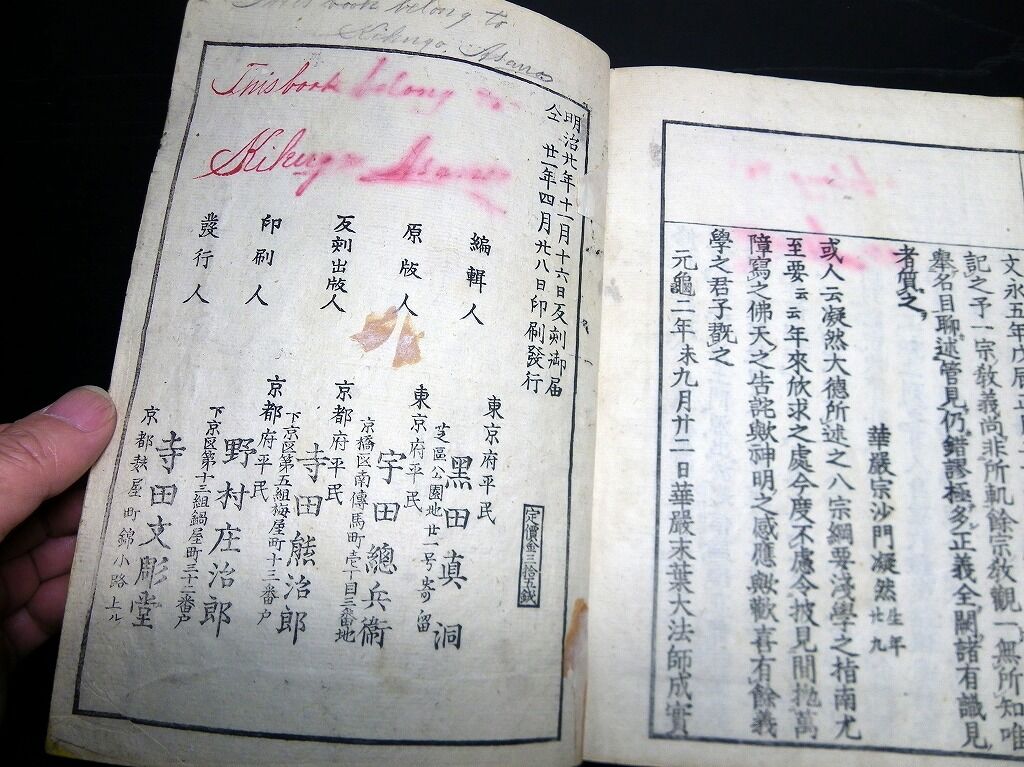 This book belong to
Kikugo Asano
This book belong to
Kikugo Asano
文永五年戊辰正月
記之予一宗教義尚非所軌餘宗教觀一無所知唯
舉名目聊述管見仍錯謬極多正義全闕諸有識見
者質之
華嚴宗沙門凝然 生年廿九
或人云凝然大德所述之八宗綱要淺學之指南尤
至要云云年來欣求之處今度不慮令披見間抛萬
障寫之佛天之告詫歟神明之感應歟歡喜有餘義
學之君子翫之
元龜二年未九月廿二日華嚴末葉大法師成實
明治廿年十一月十六日反刻御届
仝 廿一年四月廿八日印刷發行
定價金三拾五錢
編輯人 東京府平民
黑田真洞
芝區公園地廿一号寄留
原版人 東京府平民
宇田總兵衞
京橋区南傳馬町壱丁目三番地
反刻出版人 京都府平民
寺田熊治郎
下京区第五組梅屋町十三番戸
印刷人 京都府平民
野村庄治郎
下京区第十三組鍋屋町三十二番戸
發行人
寺田文彫堂
京都麸屋町錦小路上ル